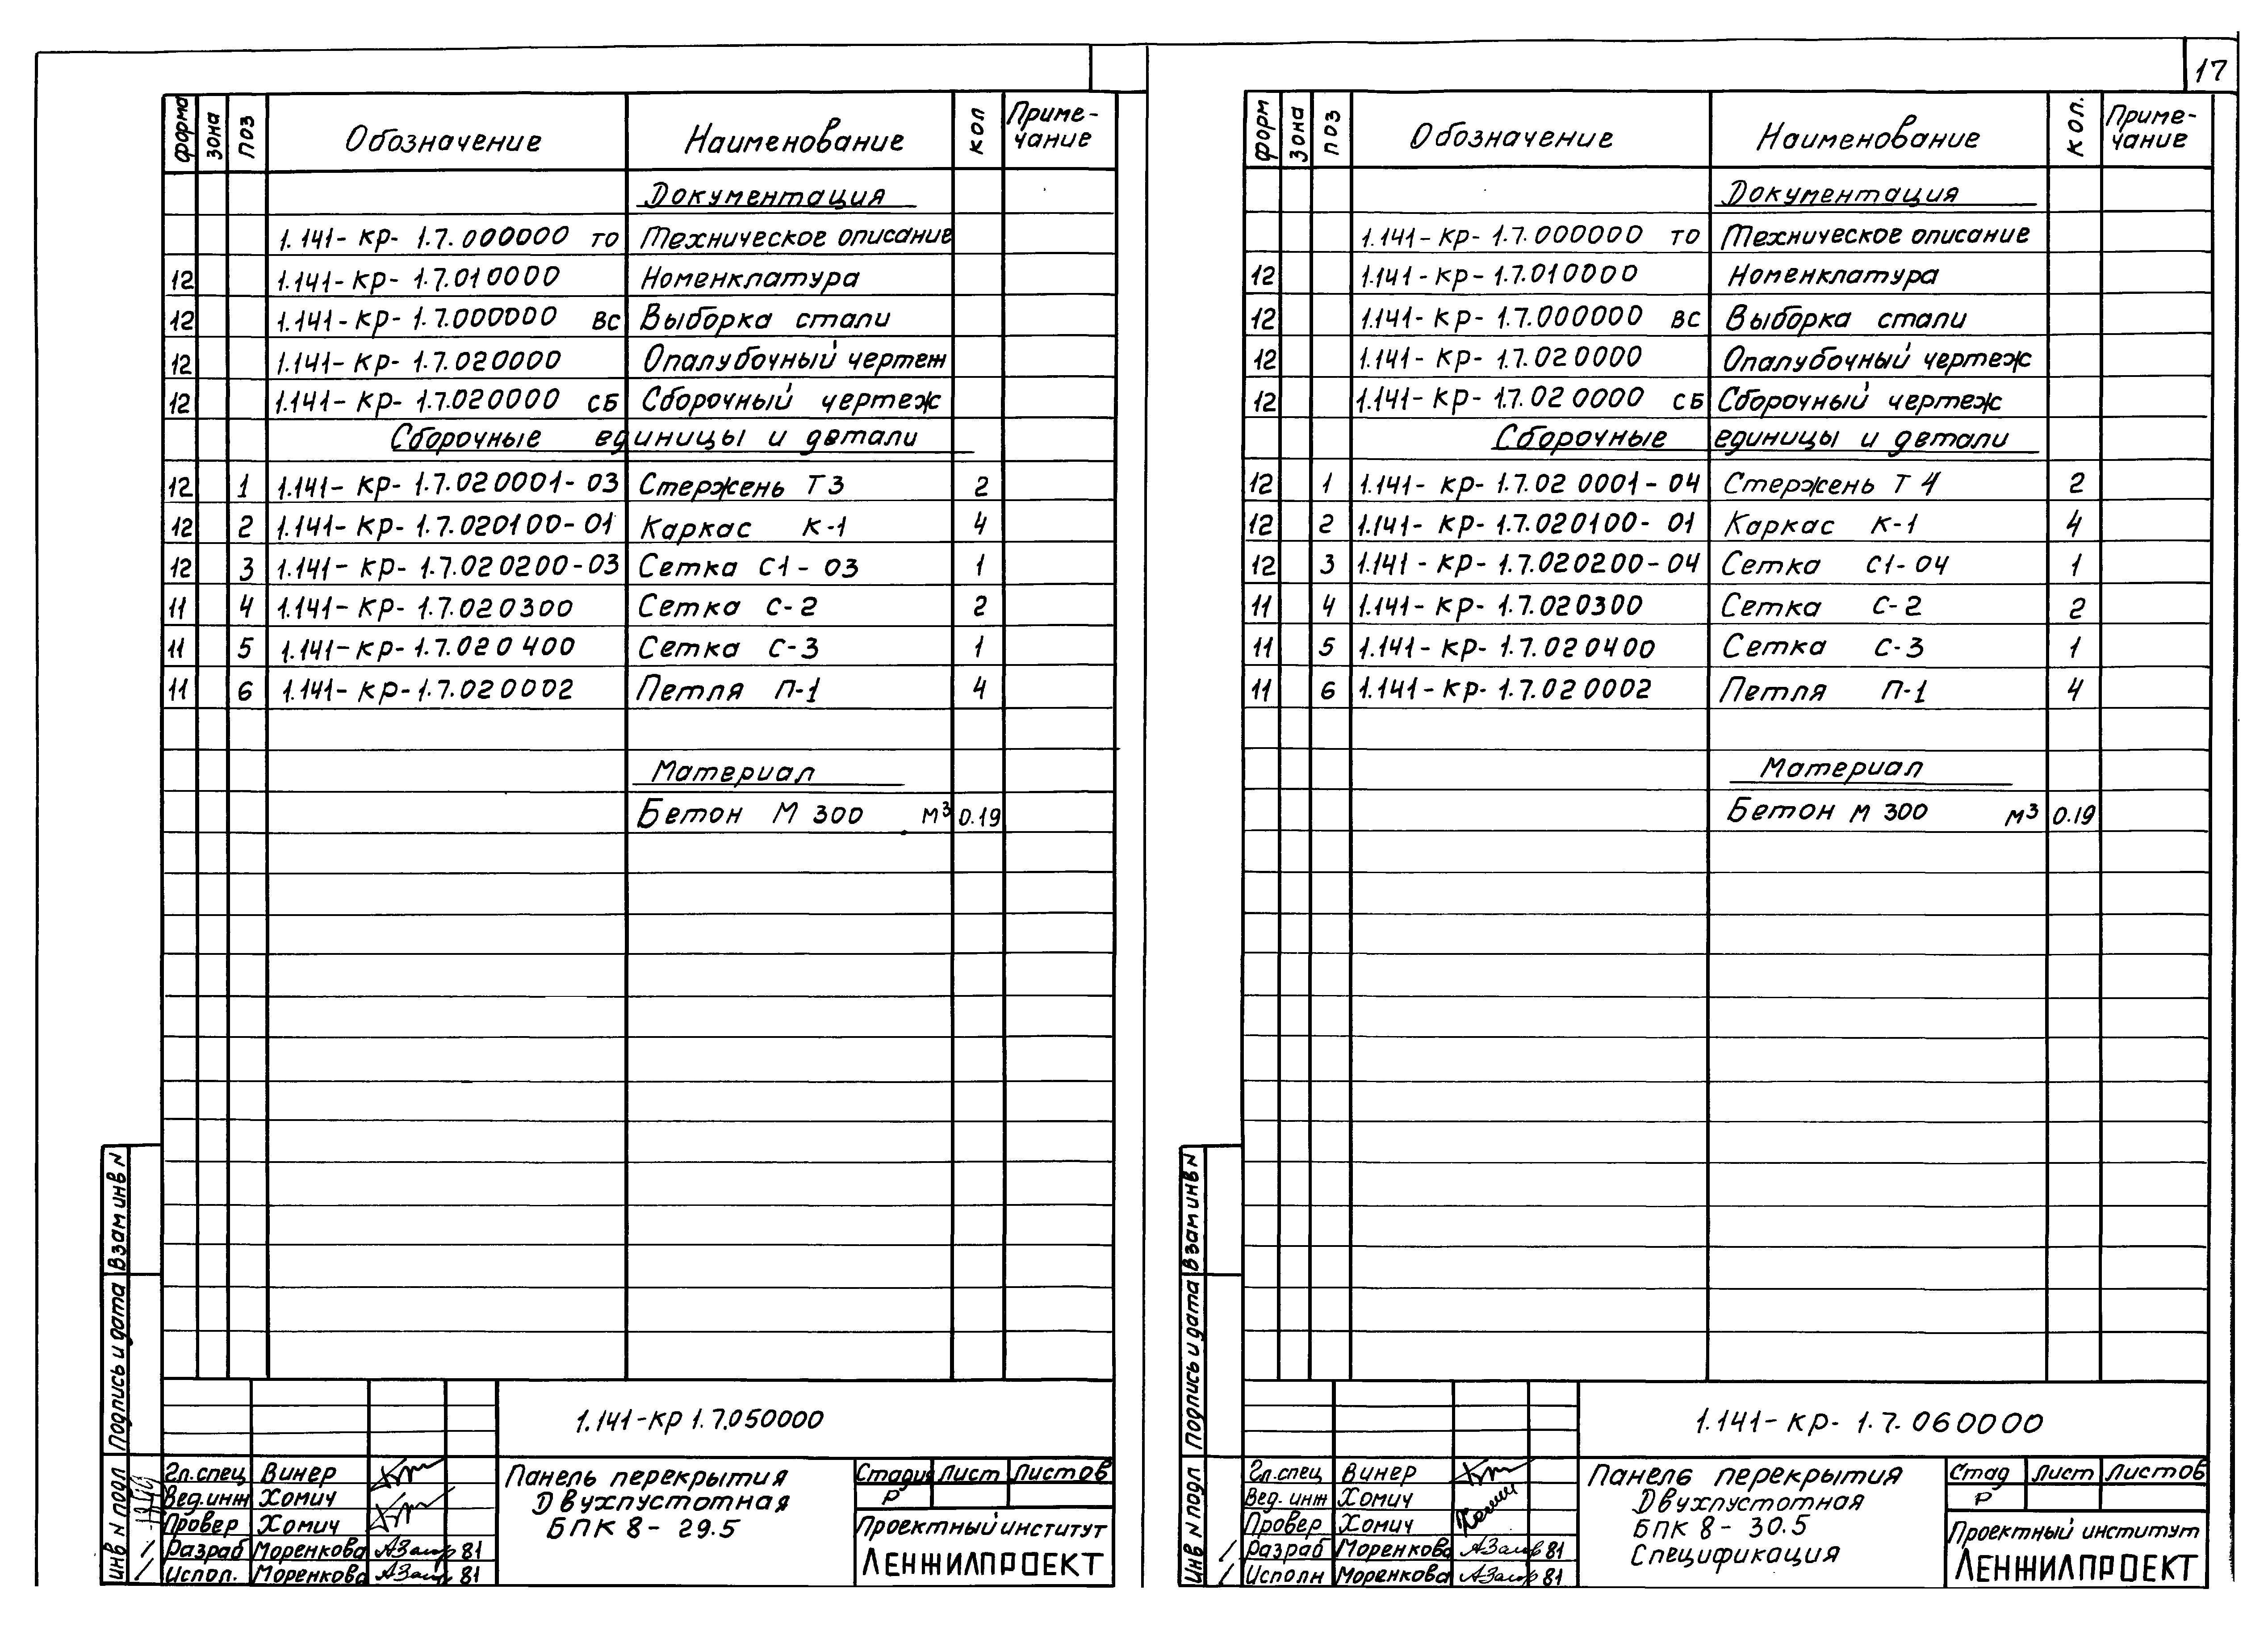 17
форма зона поз Обозначение Наименование кол Приме-
чание
Документация
1.141-КР-1.7.000000 ТО Техническое описание
12 1.141-КР-1.7.010000 Номенклатура
12 1.141-КР-1.7.000000 ВС Выборка стали
12 1.141-КР-1.7.020000 Опалубочный чертеж
12 1.141-КР-1.7.020000 СБ Сборочный чертеж
Сборочные единицы и детали
12 1 1.141-КР-1.7.020001-03 Стержень Т3 2
12 2 1.141-КР-1.7.020100-01 Каркас К-1 4
12 3 1.141-КР-1.7.020200-03 Сетка С1-03 1
11 4 1.141-КР-1.7.020300 Сетка С-2 2
11 5 1.141-КР-1.7.020400 Сетка С-3 1
11 6 1.141-КР-1.7.020002 Петля П-1 4
Материал
Бетон М 300 м³ 0.19
Взам инв N
Подпись и дата
Инв N подл
1.141-КР 1.7.050000
Гл.спец Винер
Вед.инж Хомич
Провер Хомич
Разраб Моренкова 81
Испол. Моренкова 81
Панель перекрытия
Двухпустотная
БПК 8-29.5
Стадия Лист Листов
Р
Проектный институт
ЛЕНЖИЛПРОЕКТ
форм зона поз Обозначение Наименование кол. Приме-
чание
Документация
1.141-КР-1.7.000000 ТО Техническое описание
12 1.141-КР-1.7.010000 Номенклатура
12 1.141-КР-1.7.000000 ВС Выборка стали
12 1.141-КР-1.7.020000 Опалубочный чертеж
12 1.141-КР-1.7.020000 СБ Сборочный чертеж
Сборочные единицы и детали
12 1 1.141-КР-1.7.020001-04 Стержень Т4 2
12 2 1.141-КР-1.7.020100-01 Каркас К-1 4
12 3 1.141-КР-1.7.020200-04 Сетка С1-04 1
11 4 1.141-КР-1.7.020300 Сетка С-2 2
11 5 1.141-КР-1.7.020400 Сетка С-3 1
11 6 1.141-КР-1.7.020002 Петля П-1 4
Материал
Бетон М 300 м³ 0.19
Взам инв N
Подпись и дата
Инв N подл
1.141-КР-1.7.060000
Гл.спец Винер
Вед.инж Хомич
Провер Хомич
Разраб Моренкова 81
Исполн Моренкова 81
Панель перекрытия
Двухпустотная
БПК 8-30.5
Спецификация
Стад Лист Листов
Р
Проектный институт
ЛЕНЖИЛПРОЕКТ